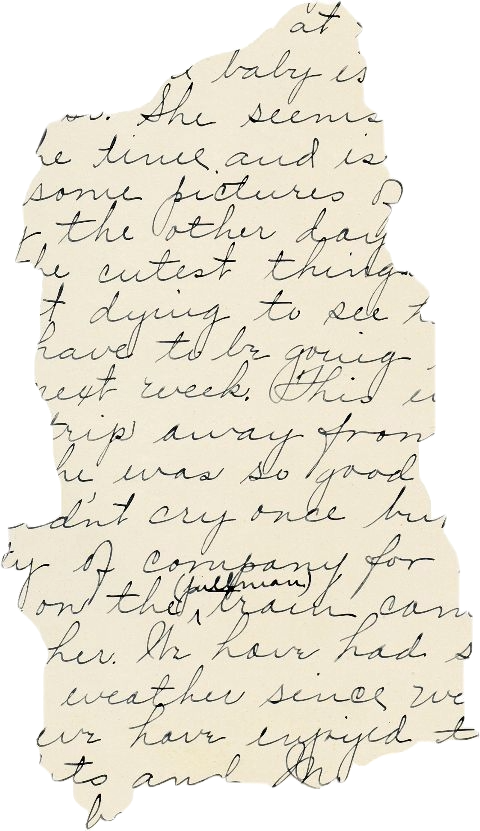 at
baby is
She seems
he time and is
some pictures o
the other day
he cutest things
t dying to see h
have to be going
next week. This
trip away from
he was so good
dn't cry once bu
ty of company for
(pullman)
on the train com
her. We have had s
weather since we
we have enjoyed t
ts and
b